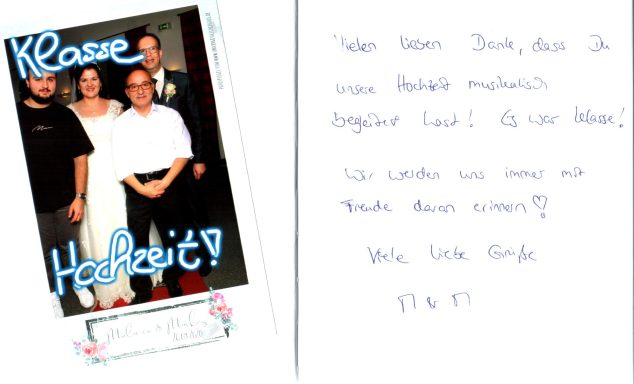 Klasse
Hochzeit!
Vielen lieben Dank, dass Du
unsere Hochzeit musikalisch
begleitet hast! Es war klasse!
Wir werden uns immer mit
Freude daran erinnern!
Viele liebe Grüße
M & M